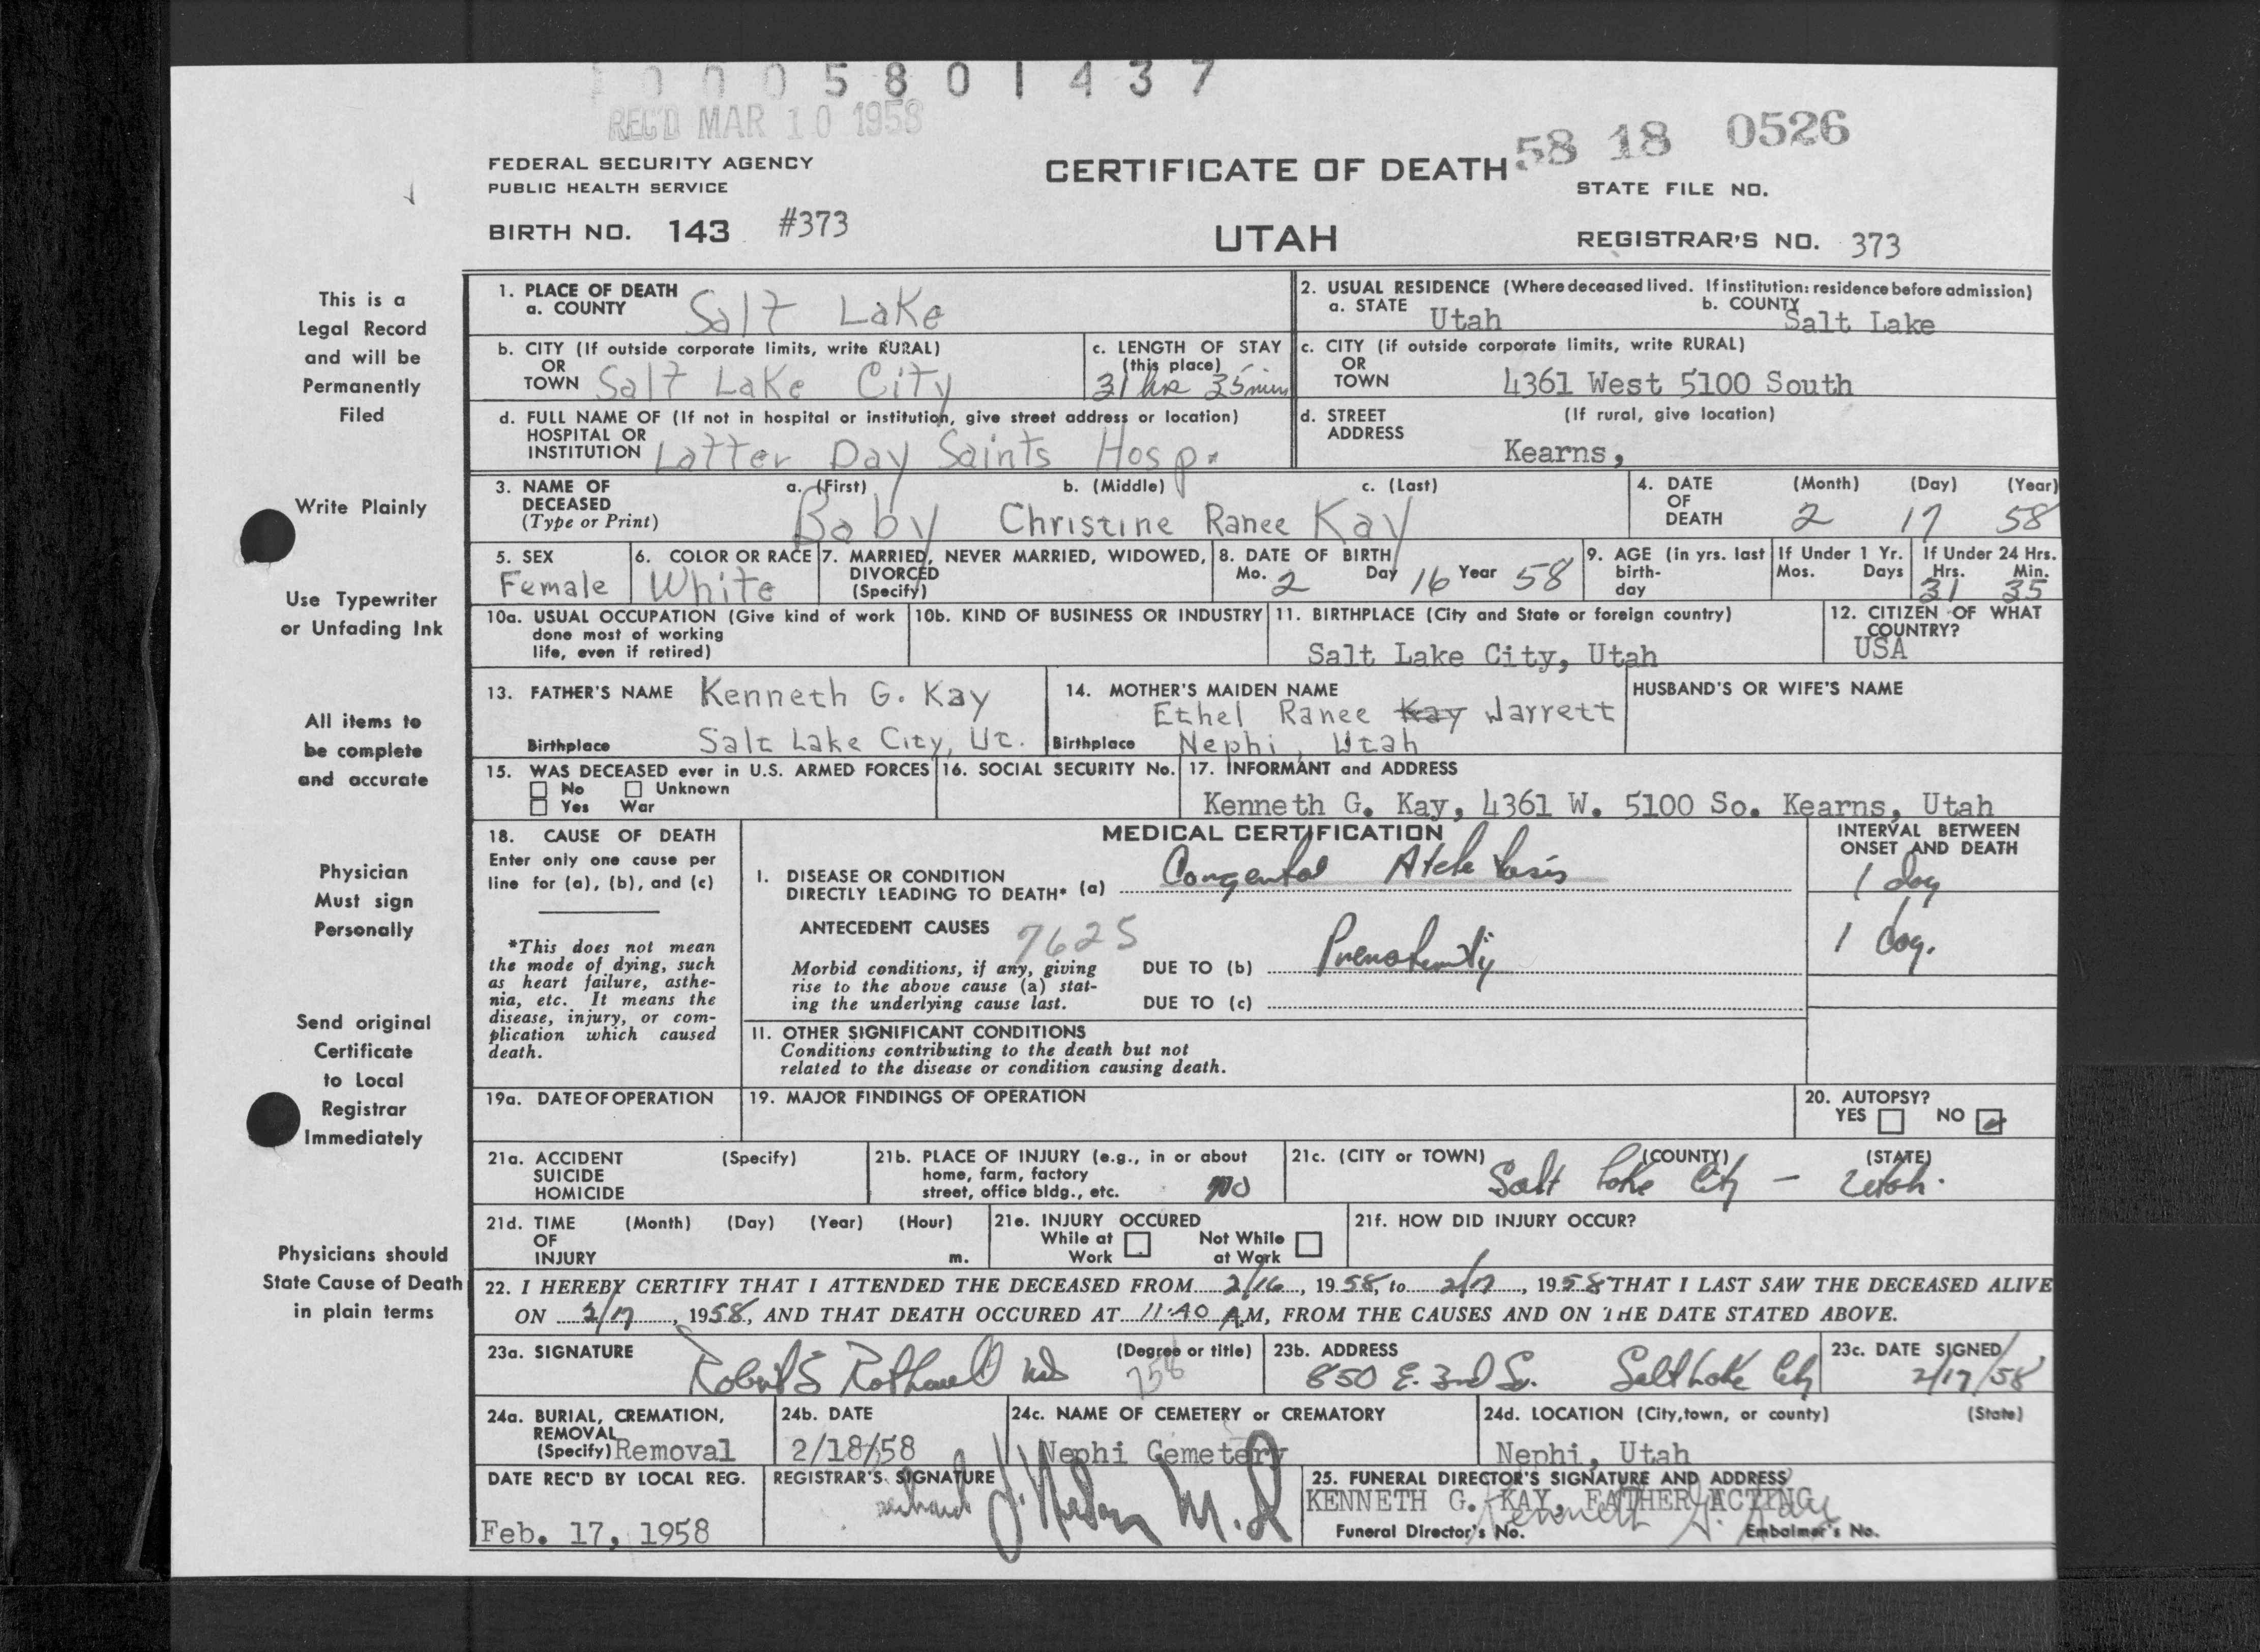 0 0 0 5 8 0 1 4 3 7
REC'D MAR 10 1958
58 18 0526
FEDERAL SECURITY AGENCY
PUBLIC HEALTH SERVICE
CERTIFICATE OF DEATH
STATE FILE NO.
BIRTH NO. 143 #373
UTAH
REGISTRAR'S NO. 373
This is a
Legal Record
and will be
Permanently
Filed
Write Plainly
Use Typewriter
or Unfading Ink
All items to
be complete
and accurate
Physician
Must sign
Personally
Send original
Certificate
to Local
Registrar
Immediately
Physicians should
State Cause of Death
in plain terms
1. PLACE OF DEATH
a. COUNTY Salt Lake
2. USUAL RESIDENCE (Where deceased lived. If institution: residence before admission)
a. STATE Utah b. COUNTY Salt Lake
b. CITY (If outside corporate limits, write RURAL)
OR
TOWN Salt Lake City
c. LENGTH OF STAY
(this place)
31 hr 35 min
c. CITY (if outside corporate limits, write RURAL)
OR
TOWN 4361 West 5100 South
d. FULL NAME OF (If not in hospital or institution, give street address or location)
HOSPITAL OR
INSTITUTION Latter Day Saints Hosp.
d. STREET (If rural, give location)
ADDRESS
Kearns,
3. NAME OF a. (First) b. (Middle) c. (Last)
DECEASED
(Type or Print) Baby Christine Ranee Kay
4. DATE (Month) (Day) (Year)
OF
DEATH 2 17 58
5. SEX
Female
6. COLOR OR RACE
White
7. MARRIED, NEVER MARRIED, WIDOWED,
DIVORCED
(Specify)
8. DATE OF BIRTH
Mo. 2 Day 16 Year 58
9. AGE (in yrs. last
birth-
day
If Under 1 Yr.
Mos. Days
If Under 24 Hrs.
Hrs. Min.
31 35
10a. USUAL OCCUPATION (Give kind of work
done most of working
life, even if retired)
10b. KIND OF BUSINESS OR INDUSTRY
11. BIRTHPLACE (City and State or foreign country)
Salt Lake City, Utah
12. CITIZEN OF WHAT
COUNTRY?
USA
13. FATHER'S NAME Kenneth G. Kay
Birthplace Salt Lake City, Ut.
14. MOTHER'S MAIDEN NAME
Ethel Ranee Kay Jarrett
Birthplace Nephi, Utah
HUSBAND'S OR WIFE'S NAME
15. WAS DECEASED ever in U.S. ARMED FORCES
No Unknown
Yes War
16. SOCIAL SECURITY No.
17. INFORMANT and ADDRESS
Kenneth G. Kay, 4361 W. 5100 So. Kearns, Utah
18. CAUSE OF DEATH
Enter only one cause per
line for (a), (b), and (c)
*This does not mean
the mode of dying, such
as heart failure, asthe-
nia, etc. It means the
disease, injury, or com-
plication which caused
death.
MEDICAL CERTIFICATION
INTERVAL BETWEEN
ONSET AND DEATH
I. DISEASE OR CONDITION
DIRECTLY LEADING TO DEATH* (a) Congental Atelectasis
1 day
ANTECEDENT CAUSES 7625
Morbid conditions, if any, giving
rise to the above cause (a) stat-
ing the underlying cause last.
DUE TO (b) Prematurity
1 day.
DUE TO (c)
II. OTHER SIGNIFICANT CONDITIONS
Conditions contributing to the death but not
related to the disease or condition causing death.
19a. DATE OF OPERATION
19. MAJOR FINDINGS OF OPERATION
20. AUTOPSY?
YES NO
21a. ACCIDENT (Specify)
SUICIDE
HOMICIDE
21b. PLACE OF INJURY (e.g., in or about
home, farm, factory
street, office bldg., etc. no
21c. (CITY or TOWN) (COUNTY) (STATE)
Salt Lake City - Utah.
21d. TIME (Month) (Day) (Year) (Hour)
OF
INJURY m.
21e. INJURY OCCURED
While at Not While
Work at Work
21f. HOW DID INJURY OCCUR?
22. I HEREBY CERTIFY THAT I ATTENDED THE DECEASED FROM 2/16, 1958, to 2/17, 1958 THAT I LAST SAW THE DECEASED ALIVE
ON 2/17, 1958, AND THAT DEATH OCCURED AT 11:40 A.M, FROM THE CAUSES AND ON THE DATE STATED ABOVE.
23a. SIGNATURE (Degree or title)
Robert S Rothwell MD 758
23b. ADDRESS
850 E. 3rd So. Salt Lake City
23c. DATE SIGNED
2/17/58
24a. BURIAL, CREMATION,
REMOVAL
(Specify) Removal
24b. DATE
2/18/58
24c. NAME OF CEMETERY or CREMATORY
Nephi Cemetery
24d. LOCATION (City, town, or county) (State)
Nephi, Utah
DATE REC'D BY LOCAL REG.
Feb. 17, 1958
REGISTRAR'S SIGNATURE
J. Nelson M.D
25. FUNERAL DIRECTOR'S SIGNATURE AND ADDRESS
KENNETH G. KAY, FATHER ACTING
Kenneth G. Kay
Funeral Director's No. Embalmer's No.